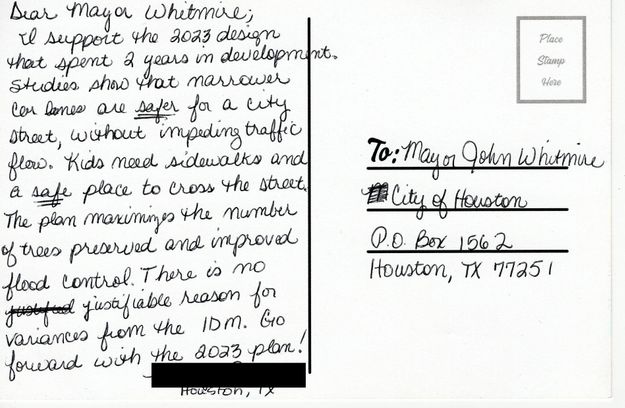 Dear Mayor Whitmire;
I support the 2023 design
that spent 2 years in development.
Studies show that narrower
car lanes are safer for a city
street, without impeding traffic
flow. Kids need sidewalks and
a safe place to cross the street.
The plan maximizes the number
of trees preserved and improved
flood control. There is no
justified justifiable reason for
variances from the IDM. Go
forward with the 2023 plan!
Houston, TX
Place
Stamp
Here
To: Mayor John Whitmire
City of Houston
P.O. Box 1562
Houston, TX 77251